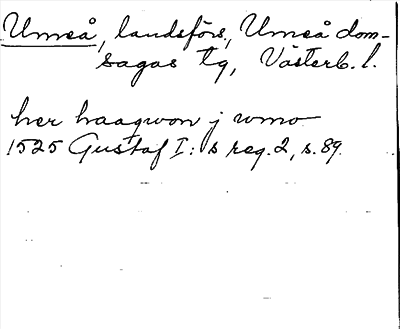 Umeå, landsförs., Umeå dom-
sagas tg, Västerb. l.
her haaqwon j vmo
1525 Gustaf I:s reg. 2, s. 89.